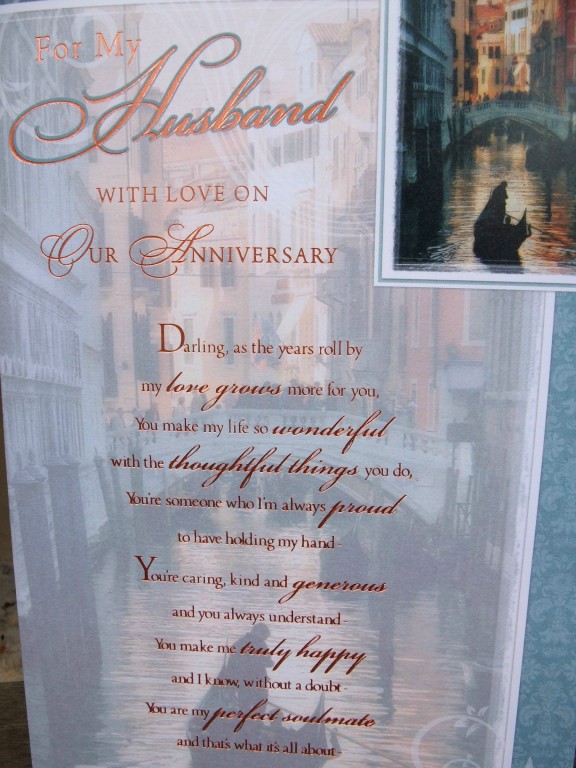 For My
Husband
WITH LOVE ON
OUR ANNIVERSARY
Darling, as the years roll by
my love grows more for you,
You make my life so wonderful
with the thoughtful things you do,
You're someone who I'm always proud
to have holding my hand-
You're caring, kind and generous
and you always understand-
You make me truly happy
and I know, without a doubt-
You are my perfect soulmate
and that's what it's all about-